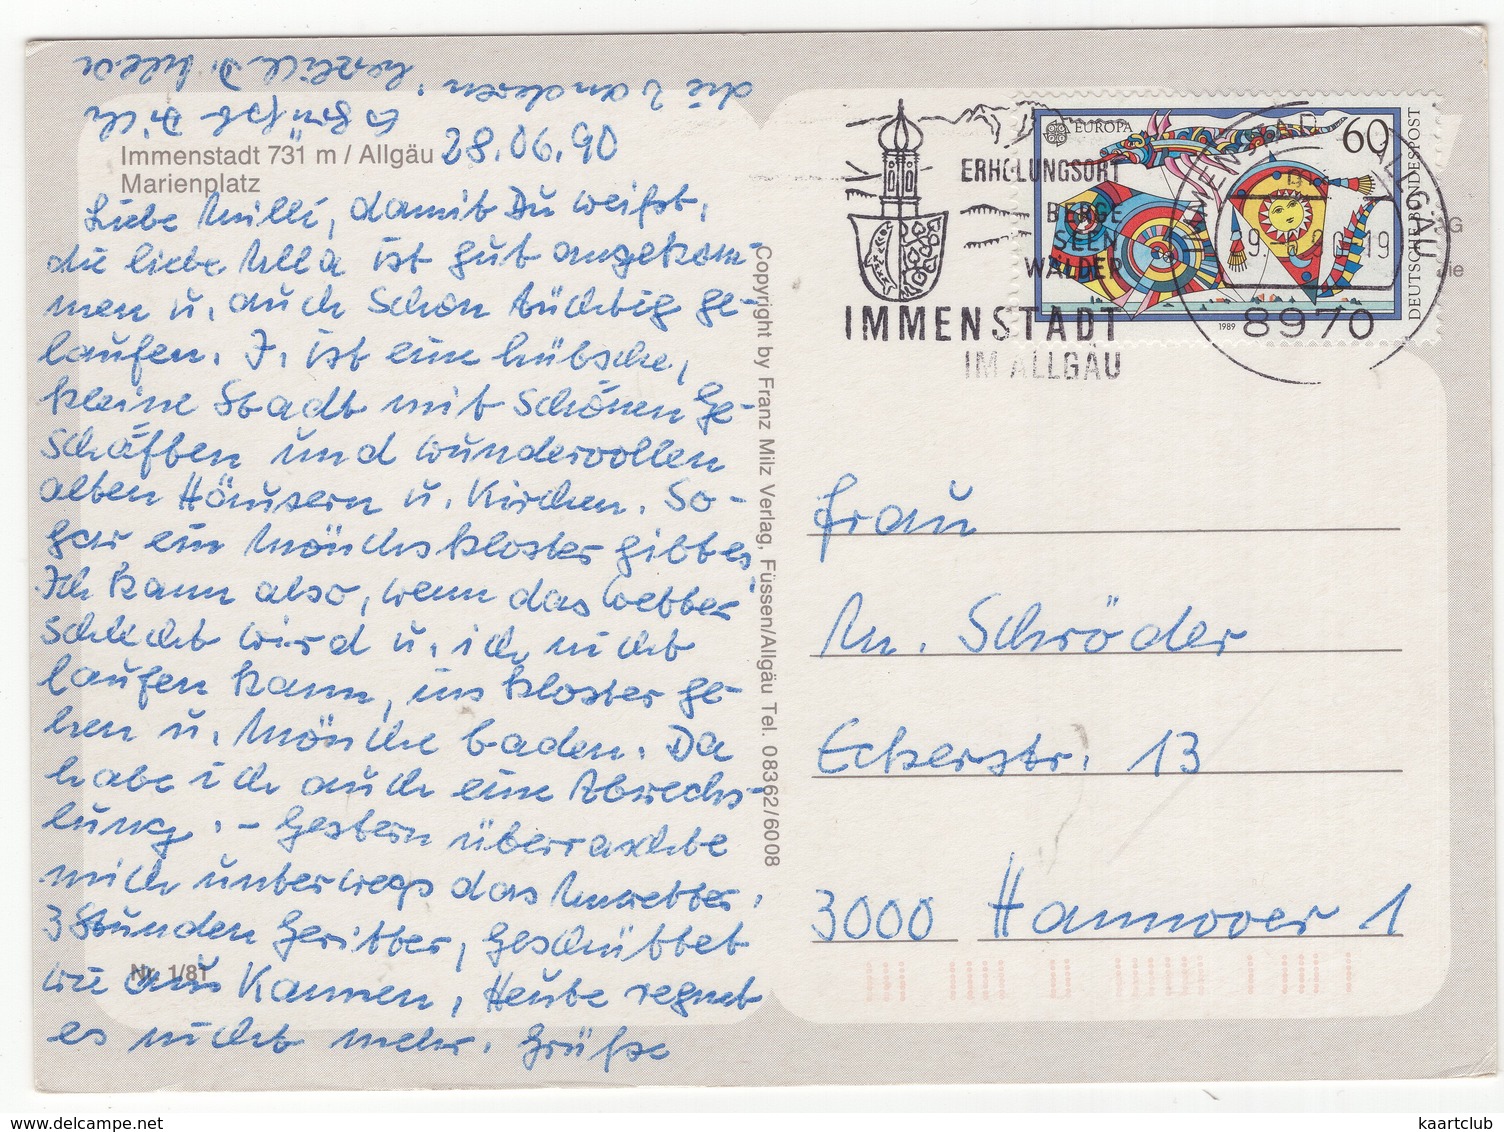 Immenstadt 731 m / Allgäu 28.06.90
Marienplatz
Liebe Milli, damit Du weißt,
die liebe Ulla ist gut angekom-
men u. auch schon tüchtig ge-
laufen. I. ist eine hübsche,
kleine Stadt mit schönen Ge-
schäften und wundervollen
alten Häusern u. Kirchen. So-
gar ein Mönchskloster gibt es.
Ich kann also, wenn das Wetter
schlecht wird u. ich nicht
laufen kann, ins Kloster ge-
hen u. Mönche baden. Da
habe ich auch eine Abrech-
lung. - Gestern überraschte
mich unterwegs das Unwetter.
3 Stunden Gewitter, geschüttet
wie aus Kannen, Heute regnet
es nicht mehr. Grüße
die anderen!
Es grüßt Dich
herzlich D. Ulla
Nr. 1/81
Copyright by Franz Milz Verlag, Füssen/Allgäu Tel. 08362/6008
ERHOLUNGSORT
BERGE
SEEN
WÄLDER
IMMENSTADT
IM ALLGÄU
EUROPA
60
DEUTSCHE BUNDESPOST
1989
IMMENSTADT ALLGÄU
29. 6.90.19
8970
Frau
M. Schröder
Eckerstr. 13
3000 Hannover 1
kaartclub
www.delcampe.net